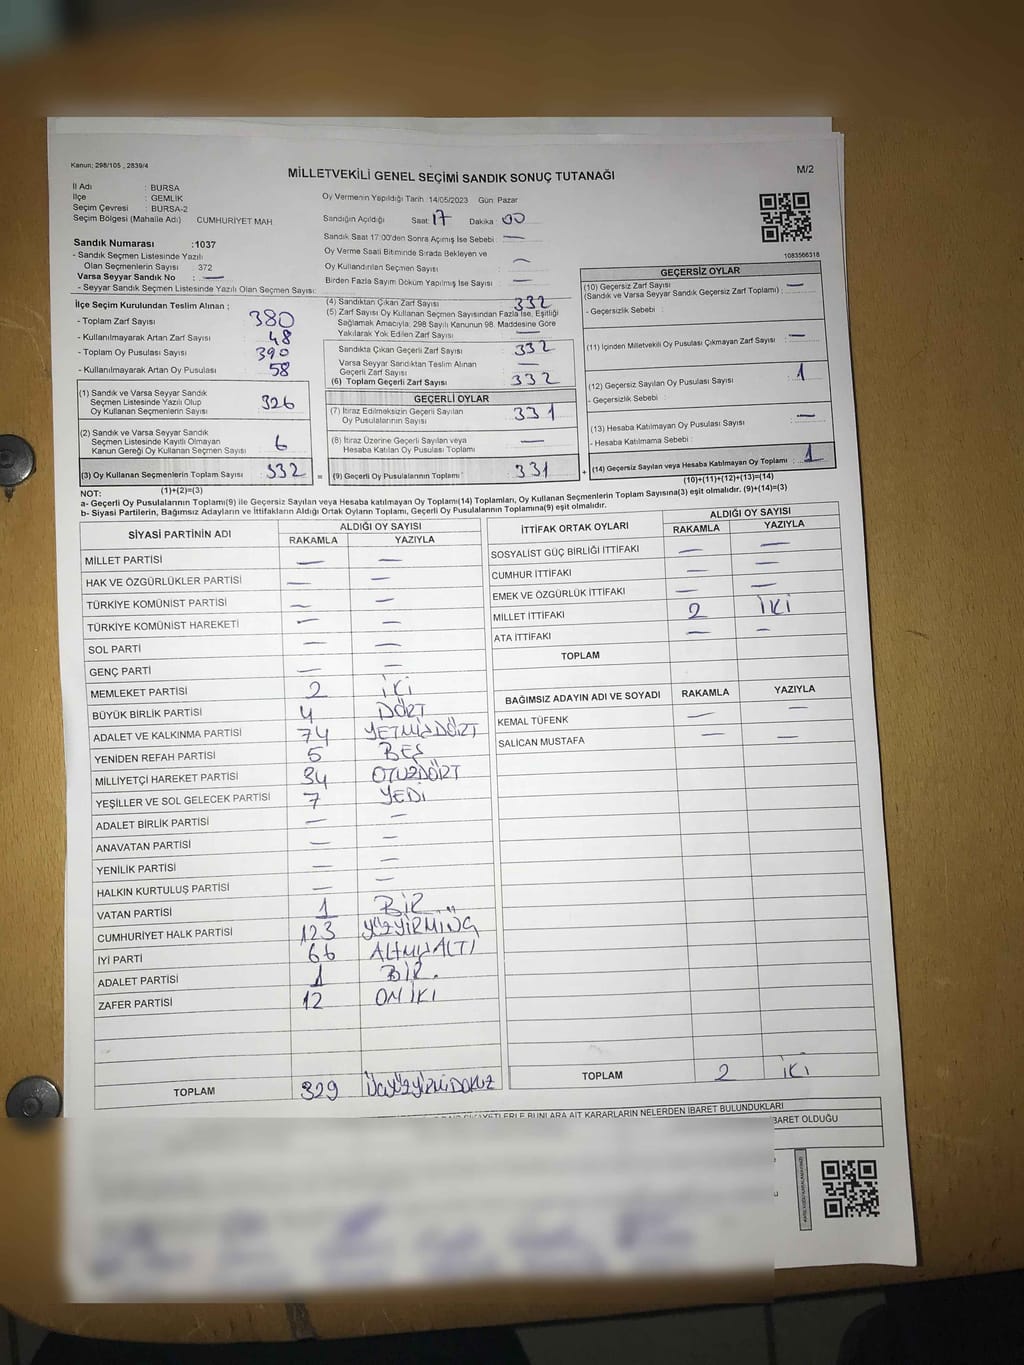 Kanun: 298/105 , 2839/4
MİLLETVEKİLİ GENEL SEÇİMİ SANDIK SONUÇ TUTANAĞI
M/2
İl Adı : BURSA
İlçe : GEMLİK
Seçim Çevresi : BURSA-2
Seçim Bölgesi (Mahalle Adı) CUMHURİYET MAH
Oy Vermenin Yapıldığı Tarih 14/05/2023 Gün: Pazar
Sandığın Açıldığı Saat: 17 Dakika : 00
Sandık Saat 17:00'den Sonra Açılmış İse Sebebi : —
Oy Verme Saati Bitiminde Sırada Bekleyen ve
Oy Kullandırılan Seçmen Sayısı : —
Birden Fazla Sayım Döküm Yapılmış İse Sayısı : —
1083566318
Sandık Numarası :1037
- Sandık Seçmen Listesinde Yazılı
Olan Seçmenlerin Sayısı : 372
Varsa Seyyar Sandık No : —
- Seyyar Sandık Seçmen Listesinde Yazılı Olan Seçmen Sayısı:
İlçe Seçim Kurulundan Teslim Alınan ;
- Toplam Zarf Sayısı : 380
- Kullanılmayarak Artan Zarf Sayısı : 48
- Toplam Oy Pusulası Sayısı : 390
- Kullanılmayarak Artan Oy Pusulası : 58
(1) Sandık ve Varsa Seyyar Sandık
Seçmen Listesinde Yazılı Olup
Oy Kullanan Seçmenlerin Sayısı : 326
(2) Sandık ve Varsa Seyyar Sandık
Seçmen Listesinde Kayıtlı Olmayan
Kanun Gereği Oy Kullanan Seçmen Sayısı : 6
(3) Oy Kullanan Seçmenlerin Toplam Sayısı : 332
(1)+(2)=(3)
(4) Sandıktan Çıkan Zarf Sayısı : 332
(5) Zarf Sayısı Oy Kullanan Seçmen Sayısından Fazla İse, Eşitliği
Sağlamak Amacıyla; 298 Sayılı Kanunun 98. Maddesine Göre
Yakılarak Yok Edilen Zarf Sayısı : —
Sandıkta Çıkan Geçerli Zarf Sayısı : 332
Varsa Seyyar Sandıktan Teslim Alınan
Geçerli Zarf Sayısı : —
(6) Toplam Geçerli Zarf Sayısı : 332
GEÇERLİ OYLAR
(7) İtiraz Edilmeksizin Geçerli Sayılan
Oy Pusulalarının Sayısı : 331
(8) İtiraz Üzerine Geçerli Sayılan veya
Hesaba Katılan Oy Pusulası Toplamı : —
= (9) Geçerli Oy Pusulalarının Toplamı : 331
GEÇERSİZ OYLAR
(10) Geçersiz Zarf Sayısı : —
(Sandık ve Varsa Seyyar Sandık Geçersiz Zarf Toplamı)
- Geçersizlik Sebebi :
(11) İçinden Milletvekili Oy Pusulası Çıkmayan Zarf Sayısı : —
(12) Geçersiz Sayılan Oy Pusulası Sayısı : 1
- Geçersizlik Sebebi :
(13) Hesaba Katılmayan Oy Pusulası Sayısı : —
- Hesaba Katılmama Sebebi :
+ (14) Geçersiz Sayılan veya Hesaba Katılmayan Oy Toplamı : 1
(10)+(11)+(12)+(13)=(14)
NOT:
a- Geçerli Oy Pusulalarının Toplamı(9) ile Geçersiz Sayılan veya Hesaba katılmayan Oy Toplamı(14) Toplamları, Oy Kullanan Seçmenlerin Toplam Sayısına(3) eşit olmalıdır. (9)+(14)=(3)
b- Siyasi Partilerin, Bağımsız Adayların ve İttifakların Aldığı Ortak Oyların Toplamı, Geçerli Oy Pusulalarının Toplamına(9) eşit olmalıdır.
SİYASİ PARTİNİN ADI ALDIĞI OY SAYISI
RAKAMLA YAZIYLA
MİLLET PARTİSİ — —
HAK VE ÖZGÜRLÜKLER PARTİSİ — —
TÜRKİYE KOMÜNİST PARTİSİ — —
TÜRKİYE KOMÜNİST HAREKETİ — —
SOL PARTİ — —
GENÇ PARTİ — —
MEMLEKET PARTİSİ 2 İKİ
BÜYÜK BİRLİK PARTİSİ 4 DÖRT
ADALET VE KALKINMA PARTİSİ 74 YETMİŞDÖRT
YENİDEN REFAH PARTİSİ 5 BEŞ
MİLLİYETÇİ HAREKET PARTİSİ 34 OTUZDÖRT
YEŞİLLER VE SOL GELECEK PARTİSİ 7 YEDİ
ADALET BİRLİK PARTİSİ — —
ANAVATAN PARTİSİ — —
YENİLİK PARTİSİ — —
HALKIN KURTULUŞ PARTİSİ — —
VATAN PARTİSİ 1 BİR
CUMHURİYET HALK PARTİSİ 123 YÜZYİRMİÜÇ
İYİ PARTİ 66 ALTMIŞALTI
ADALET PARTİSİ 1 BİR.
ZAFER PARTİSİ 12 ONİKİ
TOPLAM 329 ÜÇYÜZYİRMİDOKUZ
İTTİFAK ORTAK OYLARI ALDIĞI OY SAYISI
RAKAMLA YAZIYLA
SOSYALİST GÜÇ BİRLİĞİ İTTİFAKI — —
CUMHUR İTTİFAKI — —
EMEK VE ÖZGÜRLÜK İTTİFAKI — —
MİLLET İTTİFAKI 2 İKİ
ATA İTTİFAKI — —
TOPLAM
BAĞIMSIZ ADAYIN ADI VE SOYADI RAKAMLA YAZIYLA
KEMAL TÜFENK — —
SALİCAN MUSTAFA — —
TOPLAM 2 İKİ
BUNLARA AİT KARARLARIN NELERDEN İBARET BULUNDUKLARI
BARET OLDUĞU